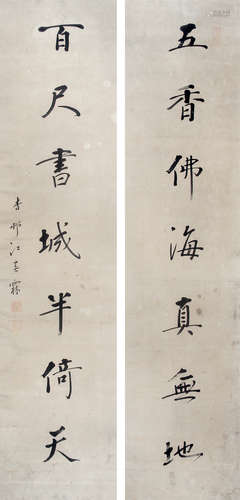 五香佛海真無地
百尺書城半倚天
江春霖